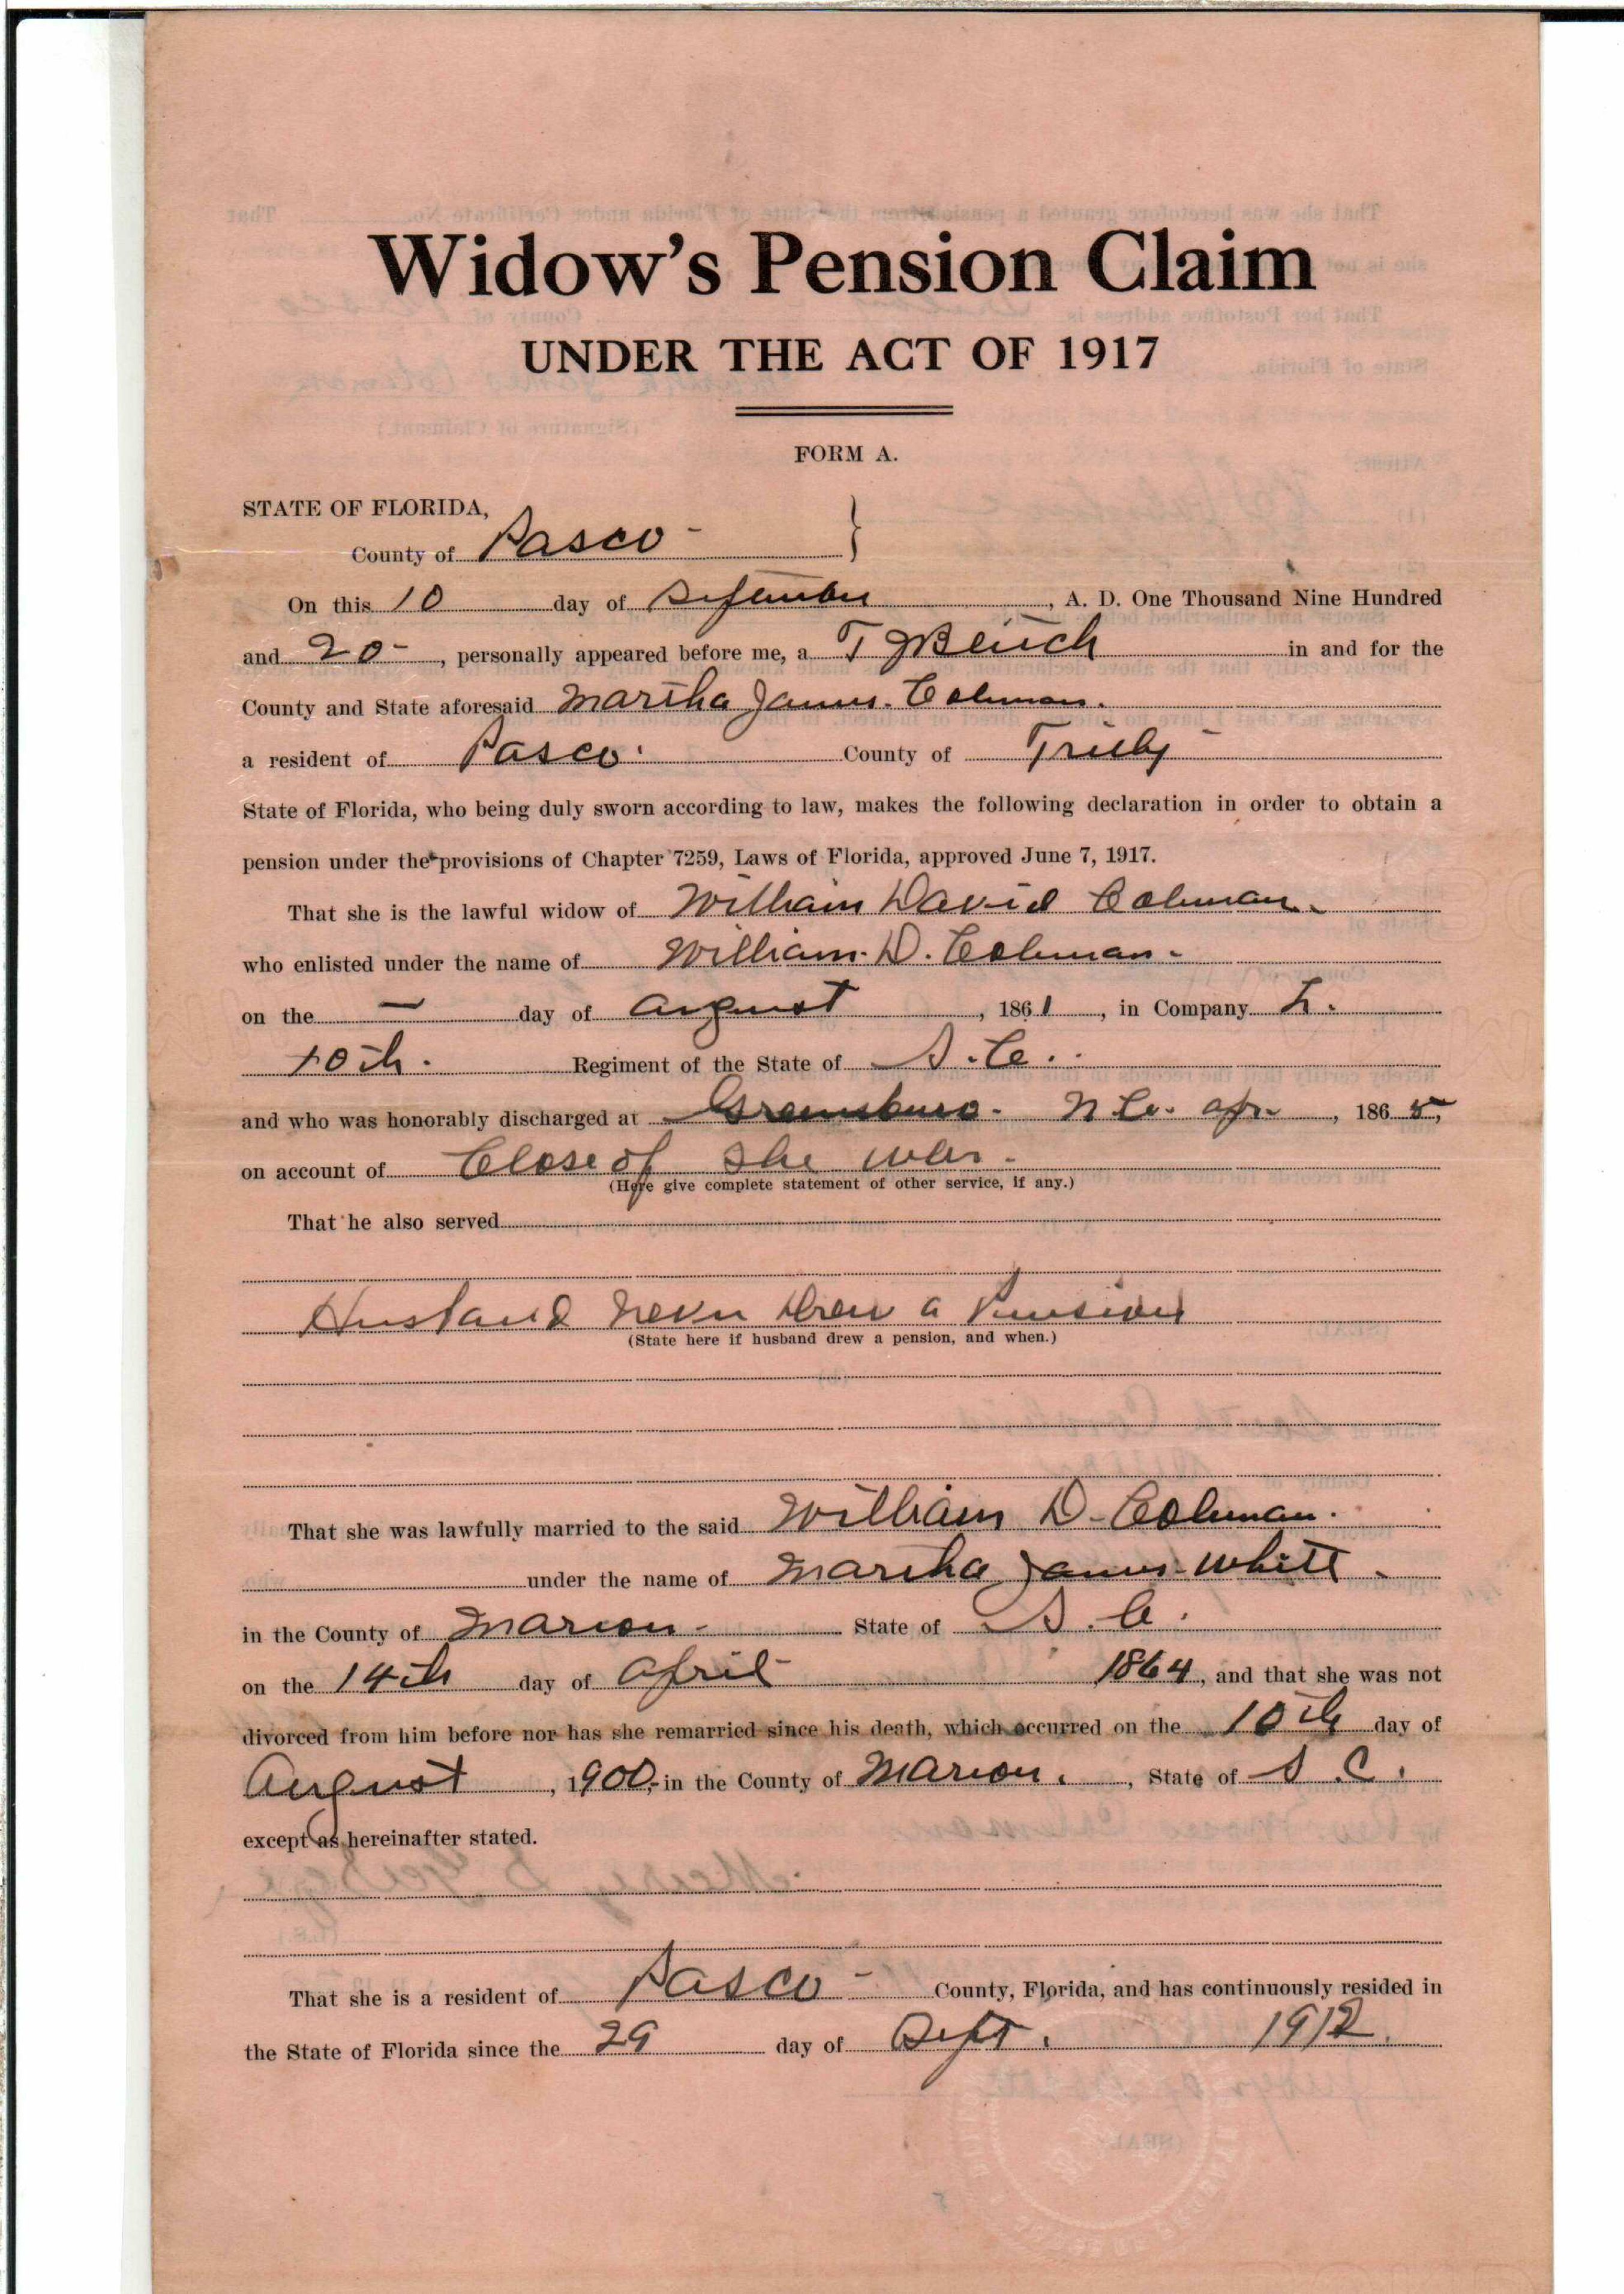 Widow's Pension Claim
UNDER THE ACT OF 1917
FORM A.
STATE OF FLORIDA,
County of Pasco -
On this 10 day of September, A. D. One Thousand Nine Hundred
and 20 -, personally appeared before me, a T J in and for the
County and State aforesaid Martha James Coleman.
a resident of Pasco. County of Trilby
State of Florida, who being duly sworn according to law, makes the following declaration in order to obtain a
pension under the provisions of Chapter 7259, Laws of Florida, approved June 7, 1917.
That she is the lawful widow of William David Coleman.
who enlisted under the name of William D. Coleman.
on the — day of August, 1861, in Company L.
10th. Regiment of the State of S. C.
and who was honorably discharged at Greensboro. N C. apr, 1865,
on account of Close of the war.
(Here give complete statement of other service, if any.)
That he also served
Husband Never Drew a Pension
(State here if husband drew a pension, and when.)
That she was lawfully married to the said William D. Coleman.
under the name of Martha James White.
in the County of Marion. State of S. C.
on the 14th day of April 1864, and that she was not
divorced from him before nor has she remarried since his death, which occurred on the 10th day of
August, 1900, in the County of Marion., State of S. C.
except as hereinafter stated.
That she is a resident of Pasco - County, Florida, and has continuously resided in
the State of Florida since the 29 day of Sept. 1912.